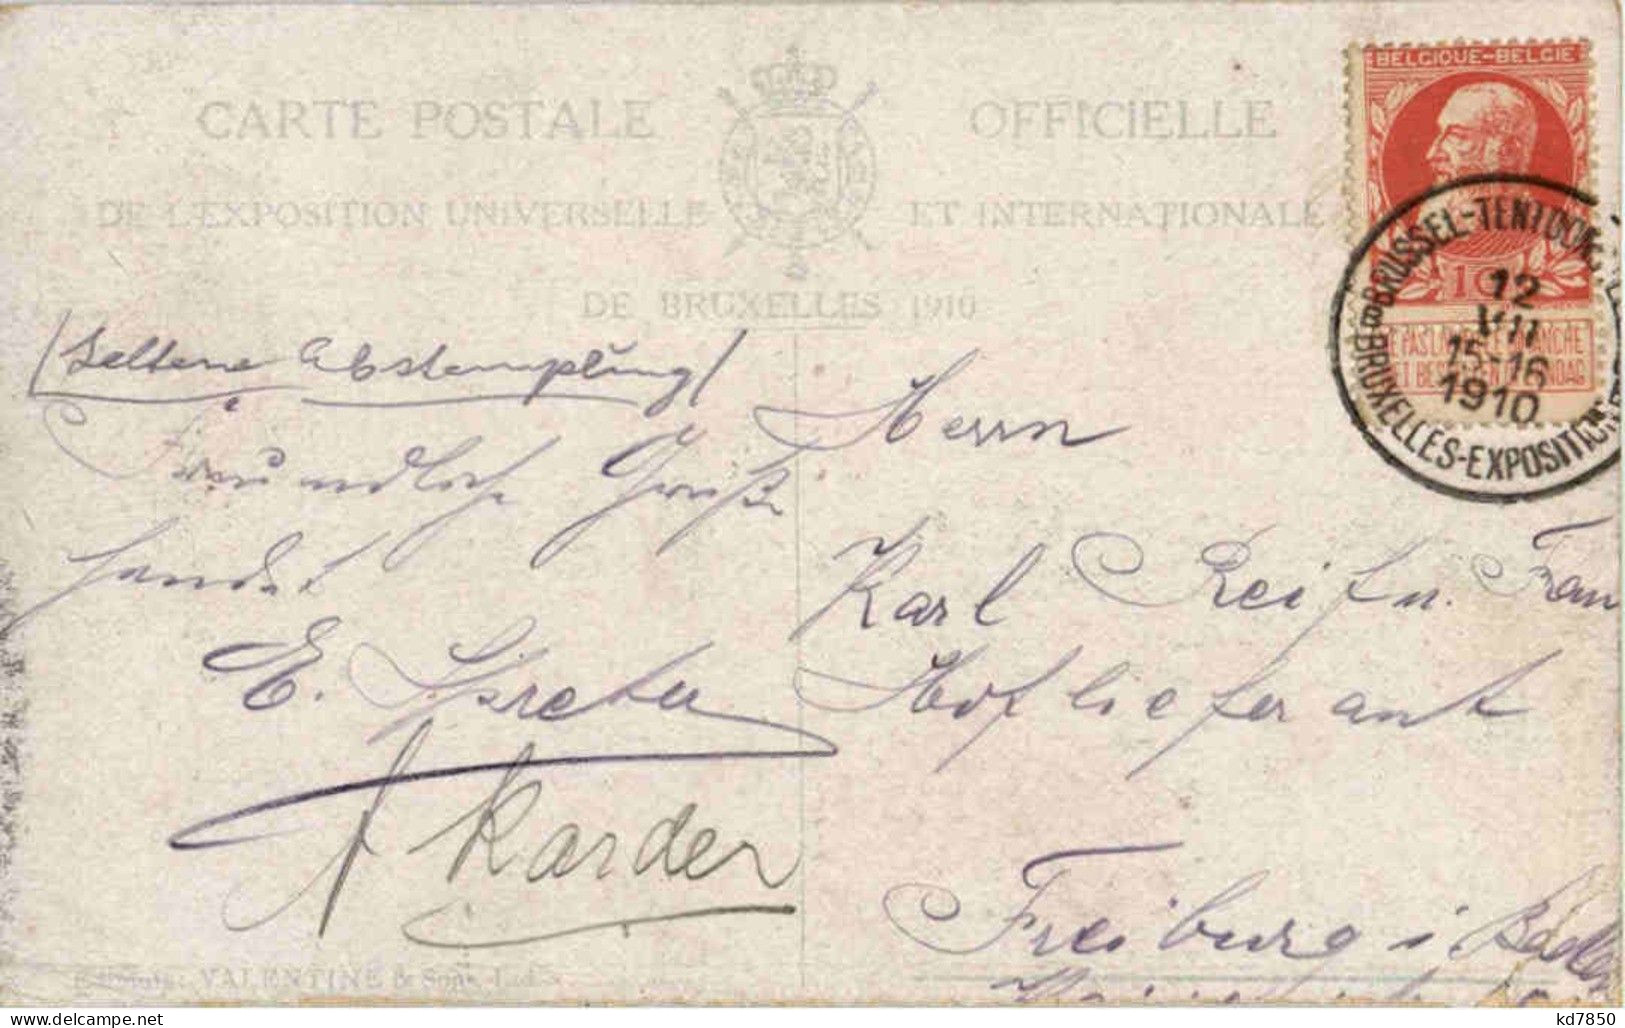 CARTE POSTALE OFFICIELLE
DE L'EXPOSITION UNIVERSELLE ET INTERNATIONALE
DE BRUXELLES 1910
BELGIQUE-BELGIE
10
BRUSSEL-TENTOON
12
VII
15-16
1910
B BRUXELLES-EXPOSITION
(Seltene Abstemplung)
Freundliche Grüße
sendet
E. Spreter
Karder
Herrn
Karl Reif u. Frau
Hoflieferant
Freiburg i. Baden
VALENTINE & Sons, Ltd
kd7850